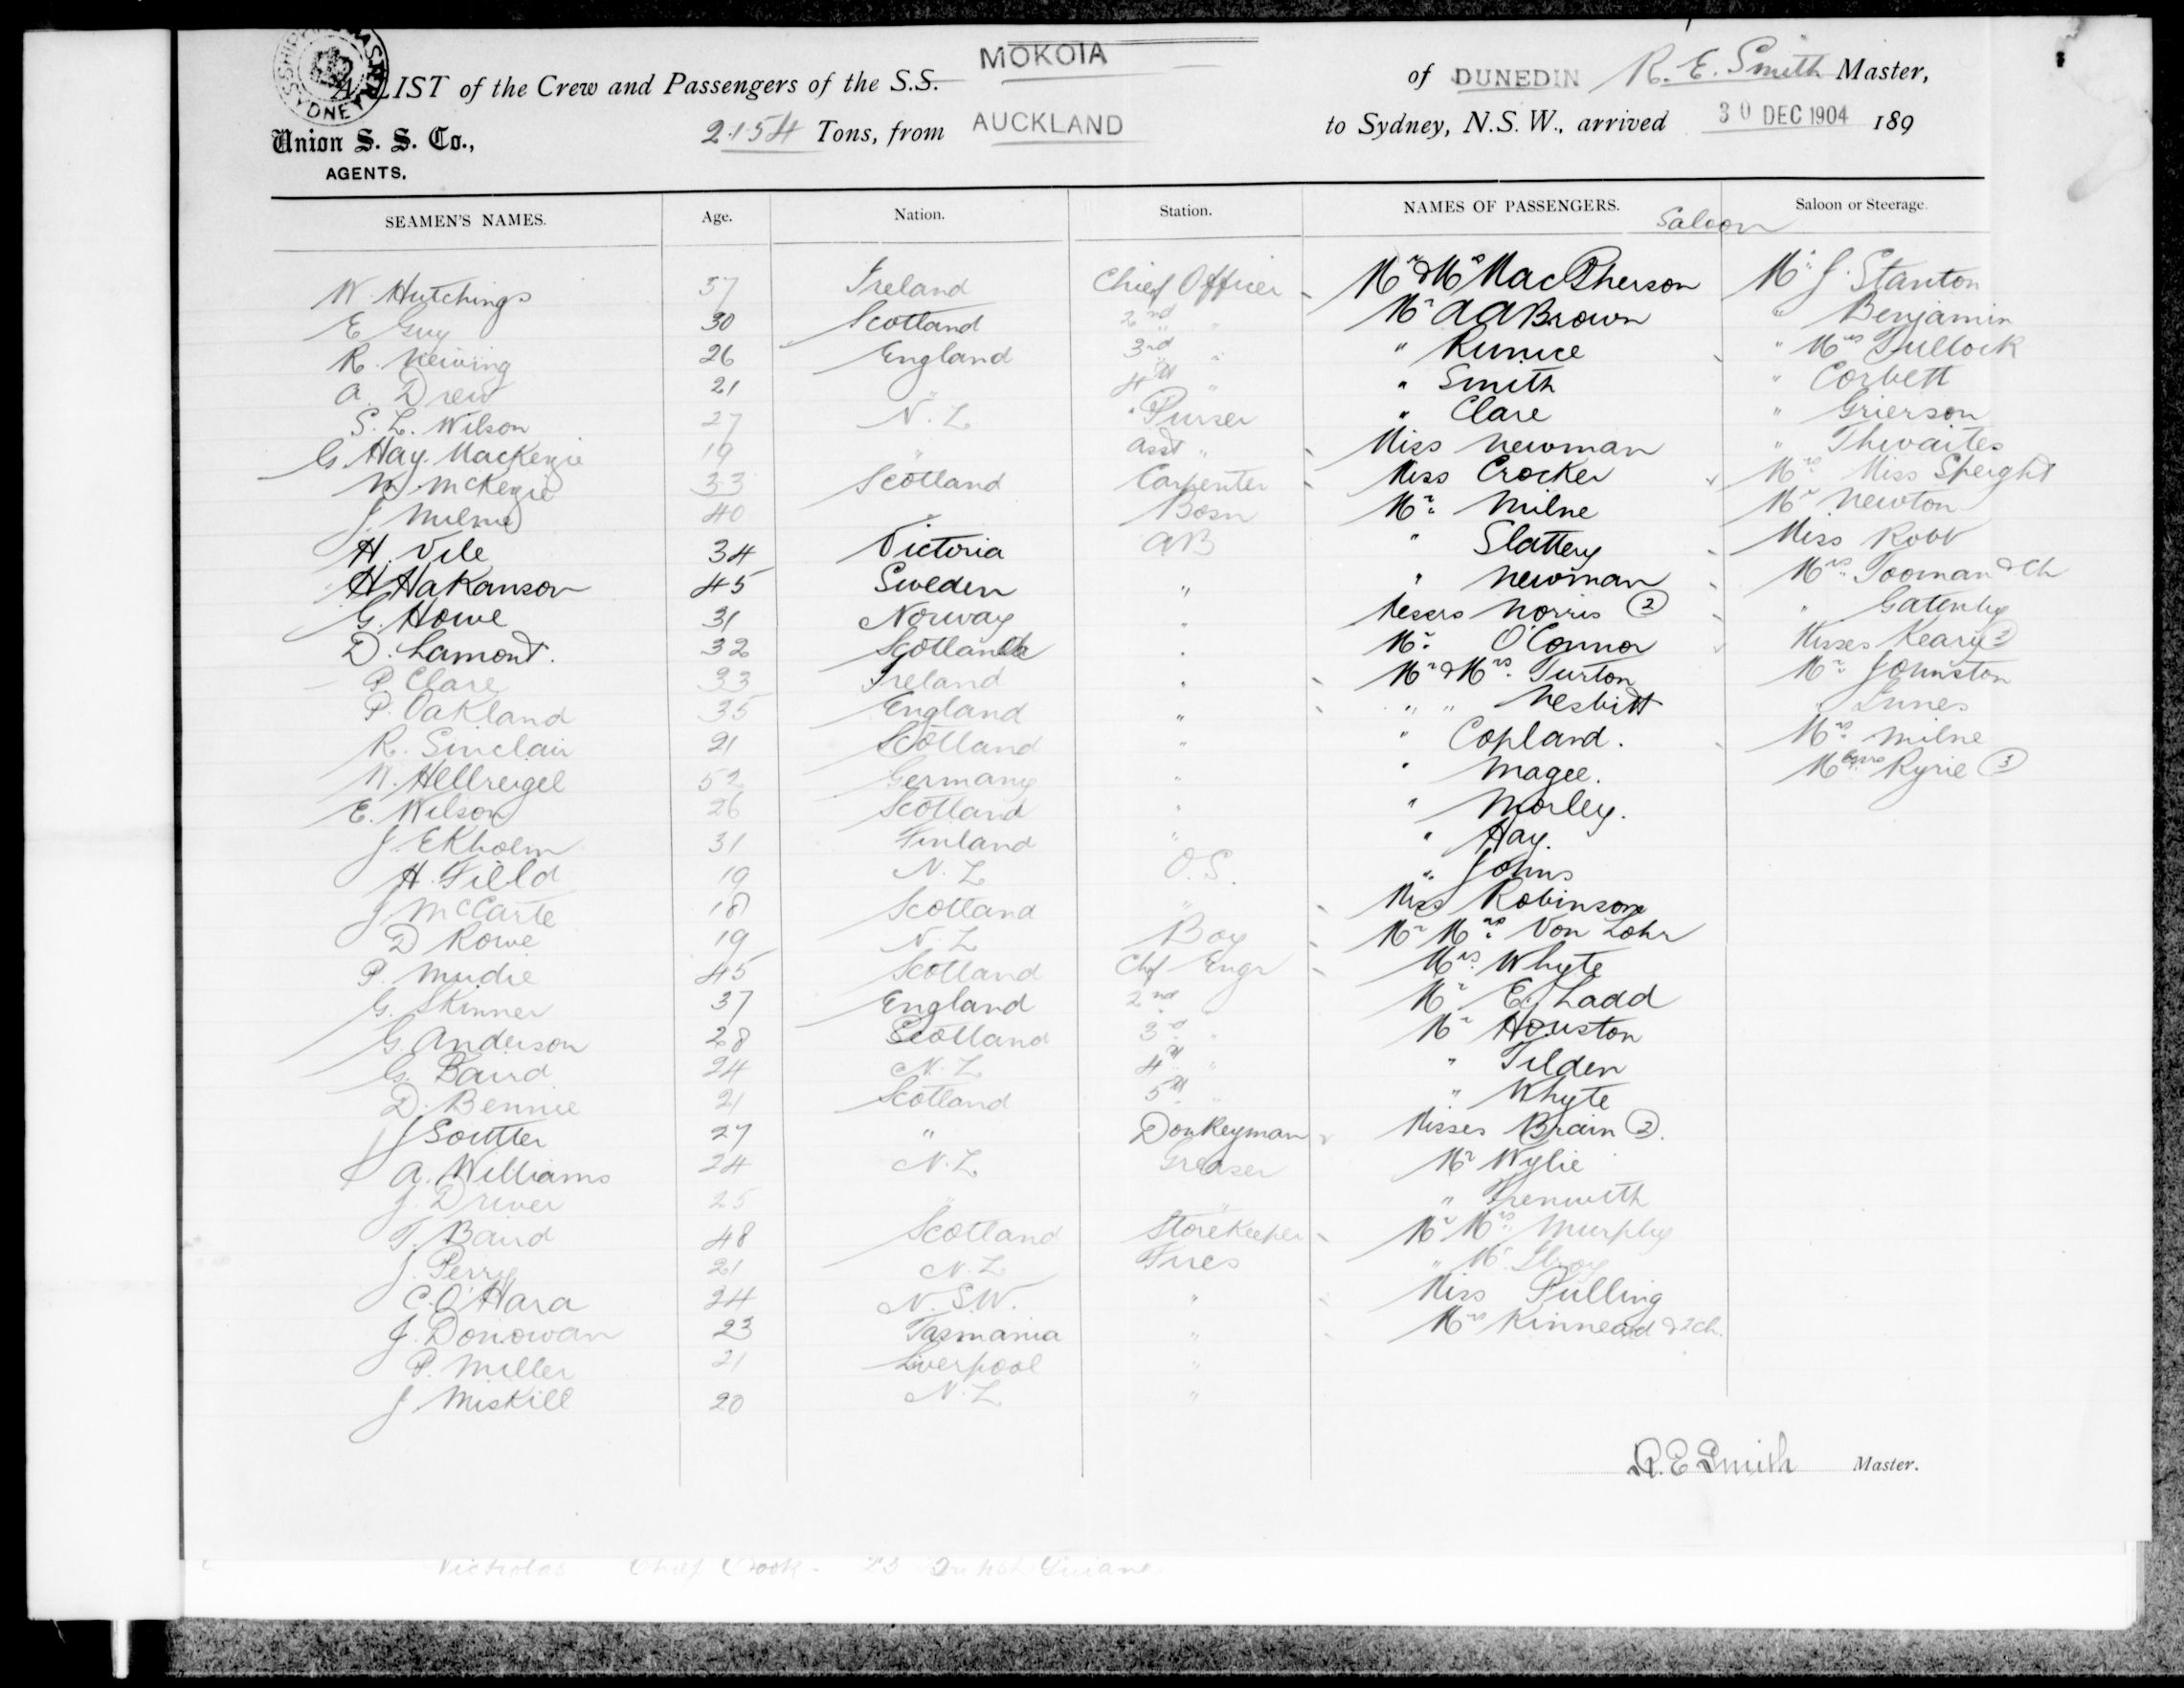 MOKOIA
A LIST of the Crew and Passengers of the S.S. of DUNEDIN R. E. Smith Master,
Union S. S. Co., 2154 Tons, from AUCKLAND to Sydney, N.S.W., arrived 30 DEC 1904 189
AGENTS.
SEAMEN'S NAMES. Age. Nation. Station. NAMES OF PASSENGERS. Saloon Saloon or Steerage.
W. Hutchings 37 Ireland Chief Officer Mr & Mrs MacPherson Mr J. Stanton
E Guy 30 Scotland 2nd " Mr A A Brown " Benjamin
R. 26 England 3rd " " " Mrs Tullock
A. Drew 21 " 4th " " Smith " Corbett
S. L. Wilson 27 N. Z Purser " Clare " Grierson
G. Hay. Mackenzie 19 " Asst " Miss Newman " Thwaites
W. McKenzie 33 Scotland Carpenter Miss Crocker Mrs Miss Speight
J. Milne 40 " Bosn Mr Milne Mr Newton
H. Vile 34 Victoria AB " Slattery Miss Robb
H Hakanson 45 Sweden " " Newman Mrs Tooman & Ch
G. Howe 31 Norway " Messrs Norris (2) " Gatenby
D. Lamont. 32 Scotland " Mr O'Connor Misses Keary (2)
P Clare 33 Ireland " Mr & Mrs Turton Mr Johnston
P. Oakland 35 England " " " Nesbitt " Innes
R. Sinclair 21 Scotland " " Copland. Mrs Milne
W. Hellreigel 52 Germany " " Magee. Messrs Kyrie (3)
E. Wilson 26 Scotland " " Morley.
J Ekholm 31 Finland " " Hay.
H. Field 19 N. Z O.S. " Johns
J McCarte 18 Scotland " Miss Robinson
D Rowe 19 N. Z Boy Mr Mrs Von Lohr
P. Mudie 45 Scotland Chf Engr Mrs Whyte
G. Skinner 37 England 2nd " Mr E. Ladd
G. Anderson 28 Scotland 3rd " Mr Houston
G. Baird 24 N. Z 4th " " Tilden
D. Bennie 21 Scotland 5th " " Whyte
J Soutter 27 " Donkeyman Misses Brain (2).
A. Williams 24 N. Z Greaser Mr Wylie
J. Driver 25 " " " Trenwith
T. Baird 48 Scotland Storekeeper Mr Mrs Murphy
J. Perry 21 N. Z Fires "
C. O'Hara 24 N. S.W. " Miss Pulling
J. Donowan 23 Tasmania " Mrs Kinnead & 2 ch.
P. Miller 21 Liverpool "
J Miskill 20 N. Z "
R. E Smith Master.
Nicholas Chief Cook - 23 British Guiana